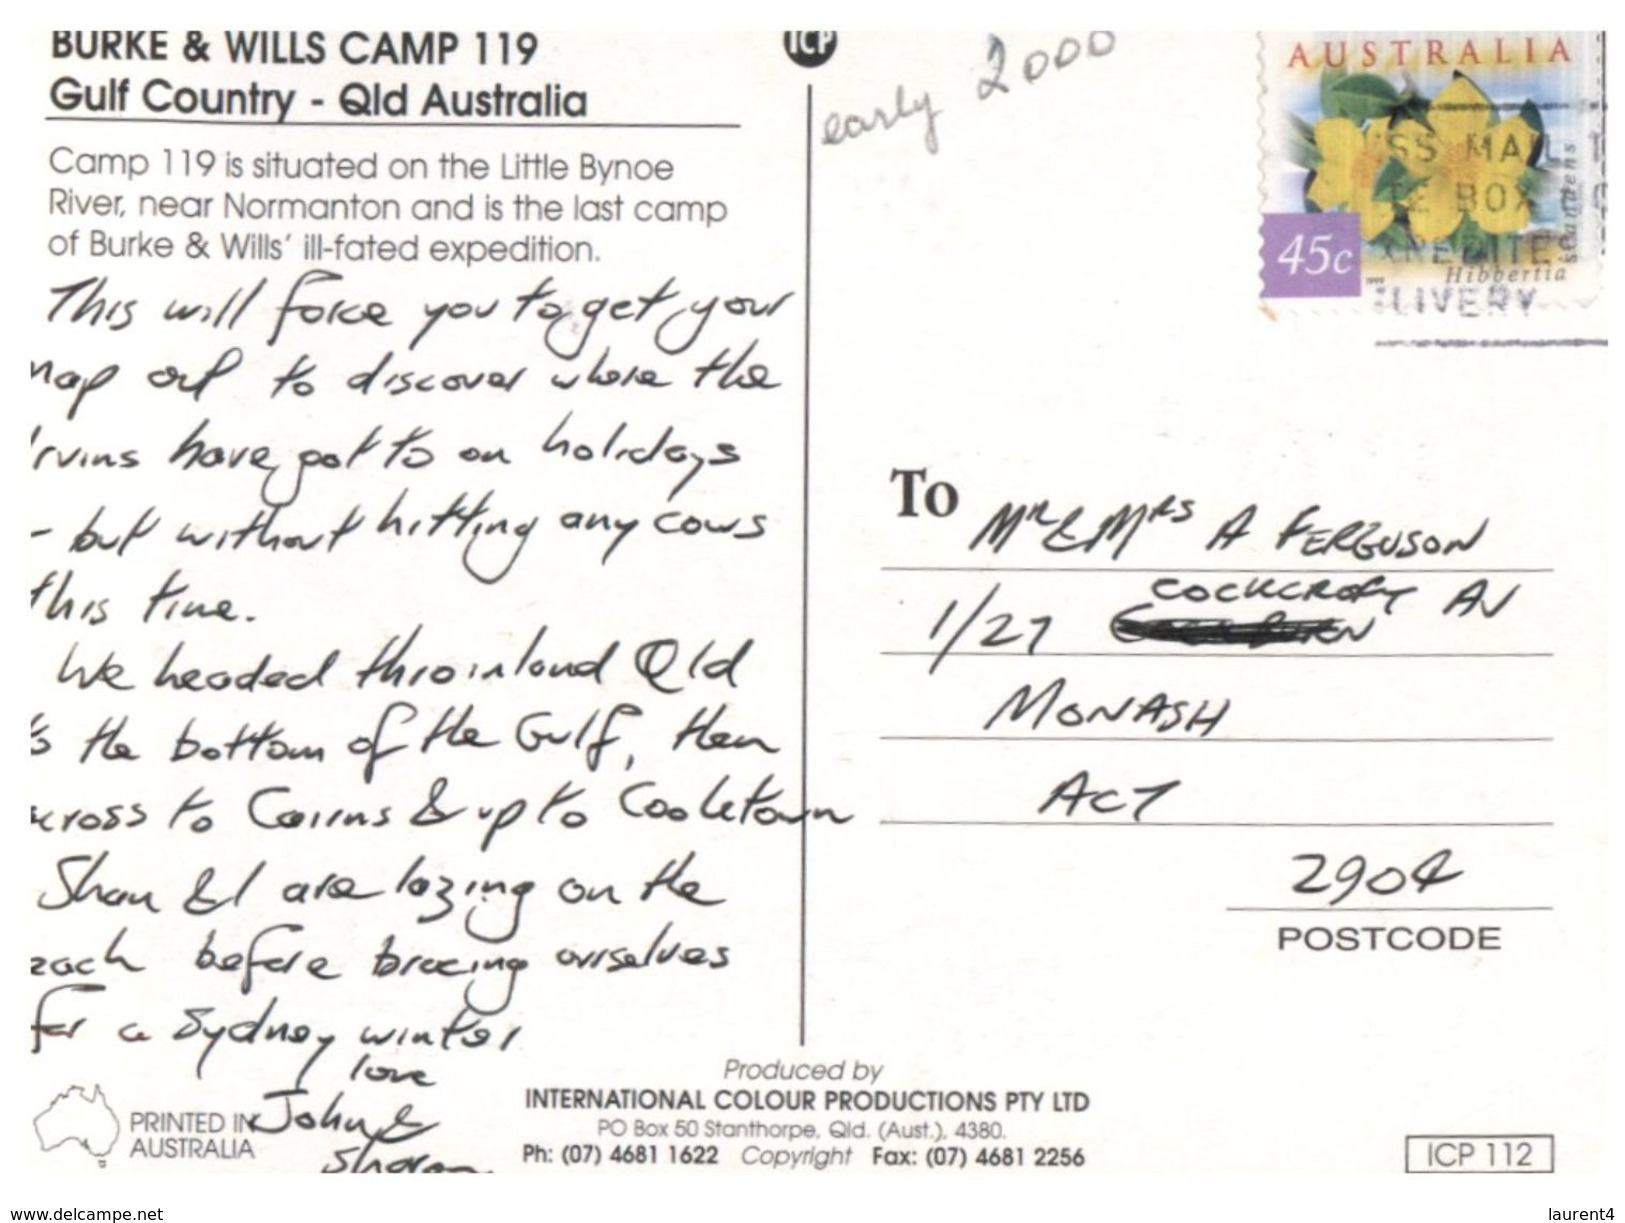 BURKE & WILLS CAMP 119
Gulf Country - Qld Australia
Camp 119 is situated on the Little Bynoe
River, near Normanton and is the last camp
of Burke & Wills' ill-fated expedition.
This will force you to get your
map out to discover where the
Irvins have got to on holidays
- but without hitting any cows
this time.
We headed thro inland Qld
to the bottom of the Gulf, then
across to Cairns & up to Cooktown
Shan & I are lazing on the
each before bracing ourselves
for a Sydney winter
love
John &
Sharon
PRINTED IN
AUSTRALIA
ICP
early 2000
AUSTRALIA
45c
Hibbertia
scandens
SS MAIL T
TE BOX
CREDITE
LIVERY
To
Mr & Mrs A FERGUSON
COCKCROFT AV
1/27
MONASH
ACT
2904
POSTCODE
Produced by
INTERNATIONAL COLOUR PRODUCTIONS PTY LTD
PO Box 50 Stanthorpe, Qld. (Aust.), 4380.
Ph: (07) 4681 1622 Copyright Fax: (07) 4681 2256
ICP 112
www.delcampe.net
laurent4